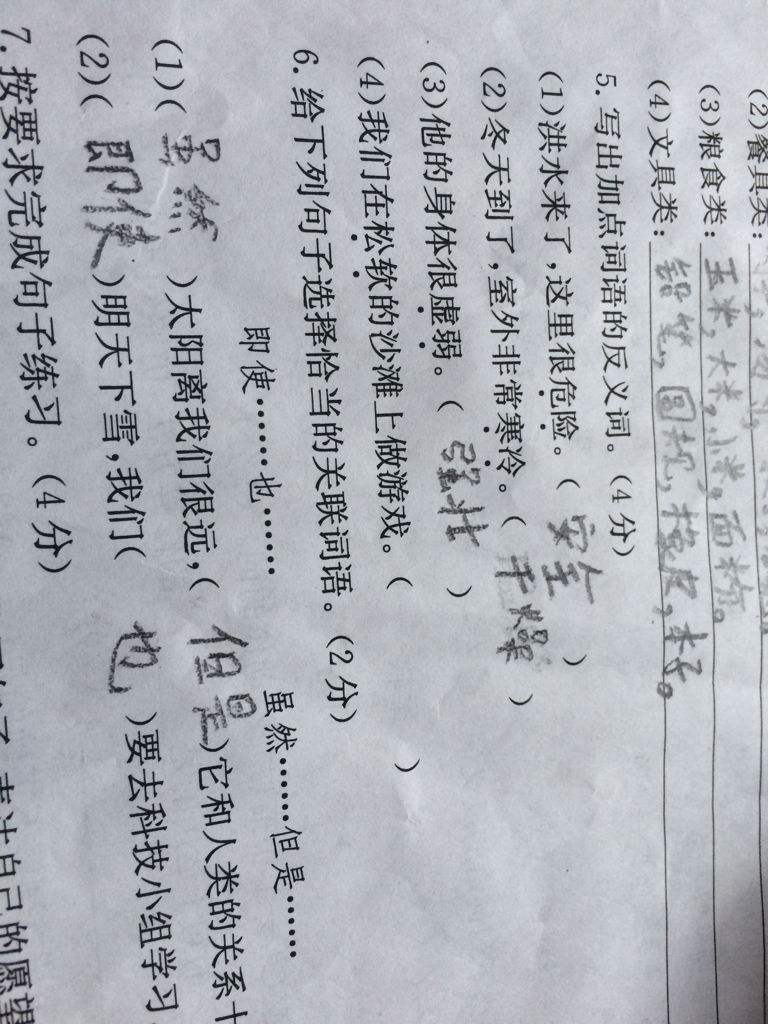 (2)餐具类:
(3)粮食类:玉米,大米,小米,面粉。
(4)文具类:铅笔,圆规,橡皮,本子。
5.写出加点词语的反义词。(4分)
(1)洪水来了,这里很危险。(安全)
(2)冬天到了,室外非常寒冷。(干燥)
(3)他的身体很虚弱。(强壮)
(4)我们在松软的沙滩上做游戏。( )
6.给下列句子选择恰当的关联词语。(2分)
即使……也…… 虽然……但是……
(1)(虽然)太阳离我们很远,(但是)它和人类的关系十
(2)(即使)明天下雪,我们(也)要去科技小组学习。
7.按要求完成句子练习。(4分)
表达自己的愿望